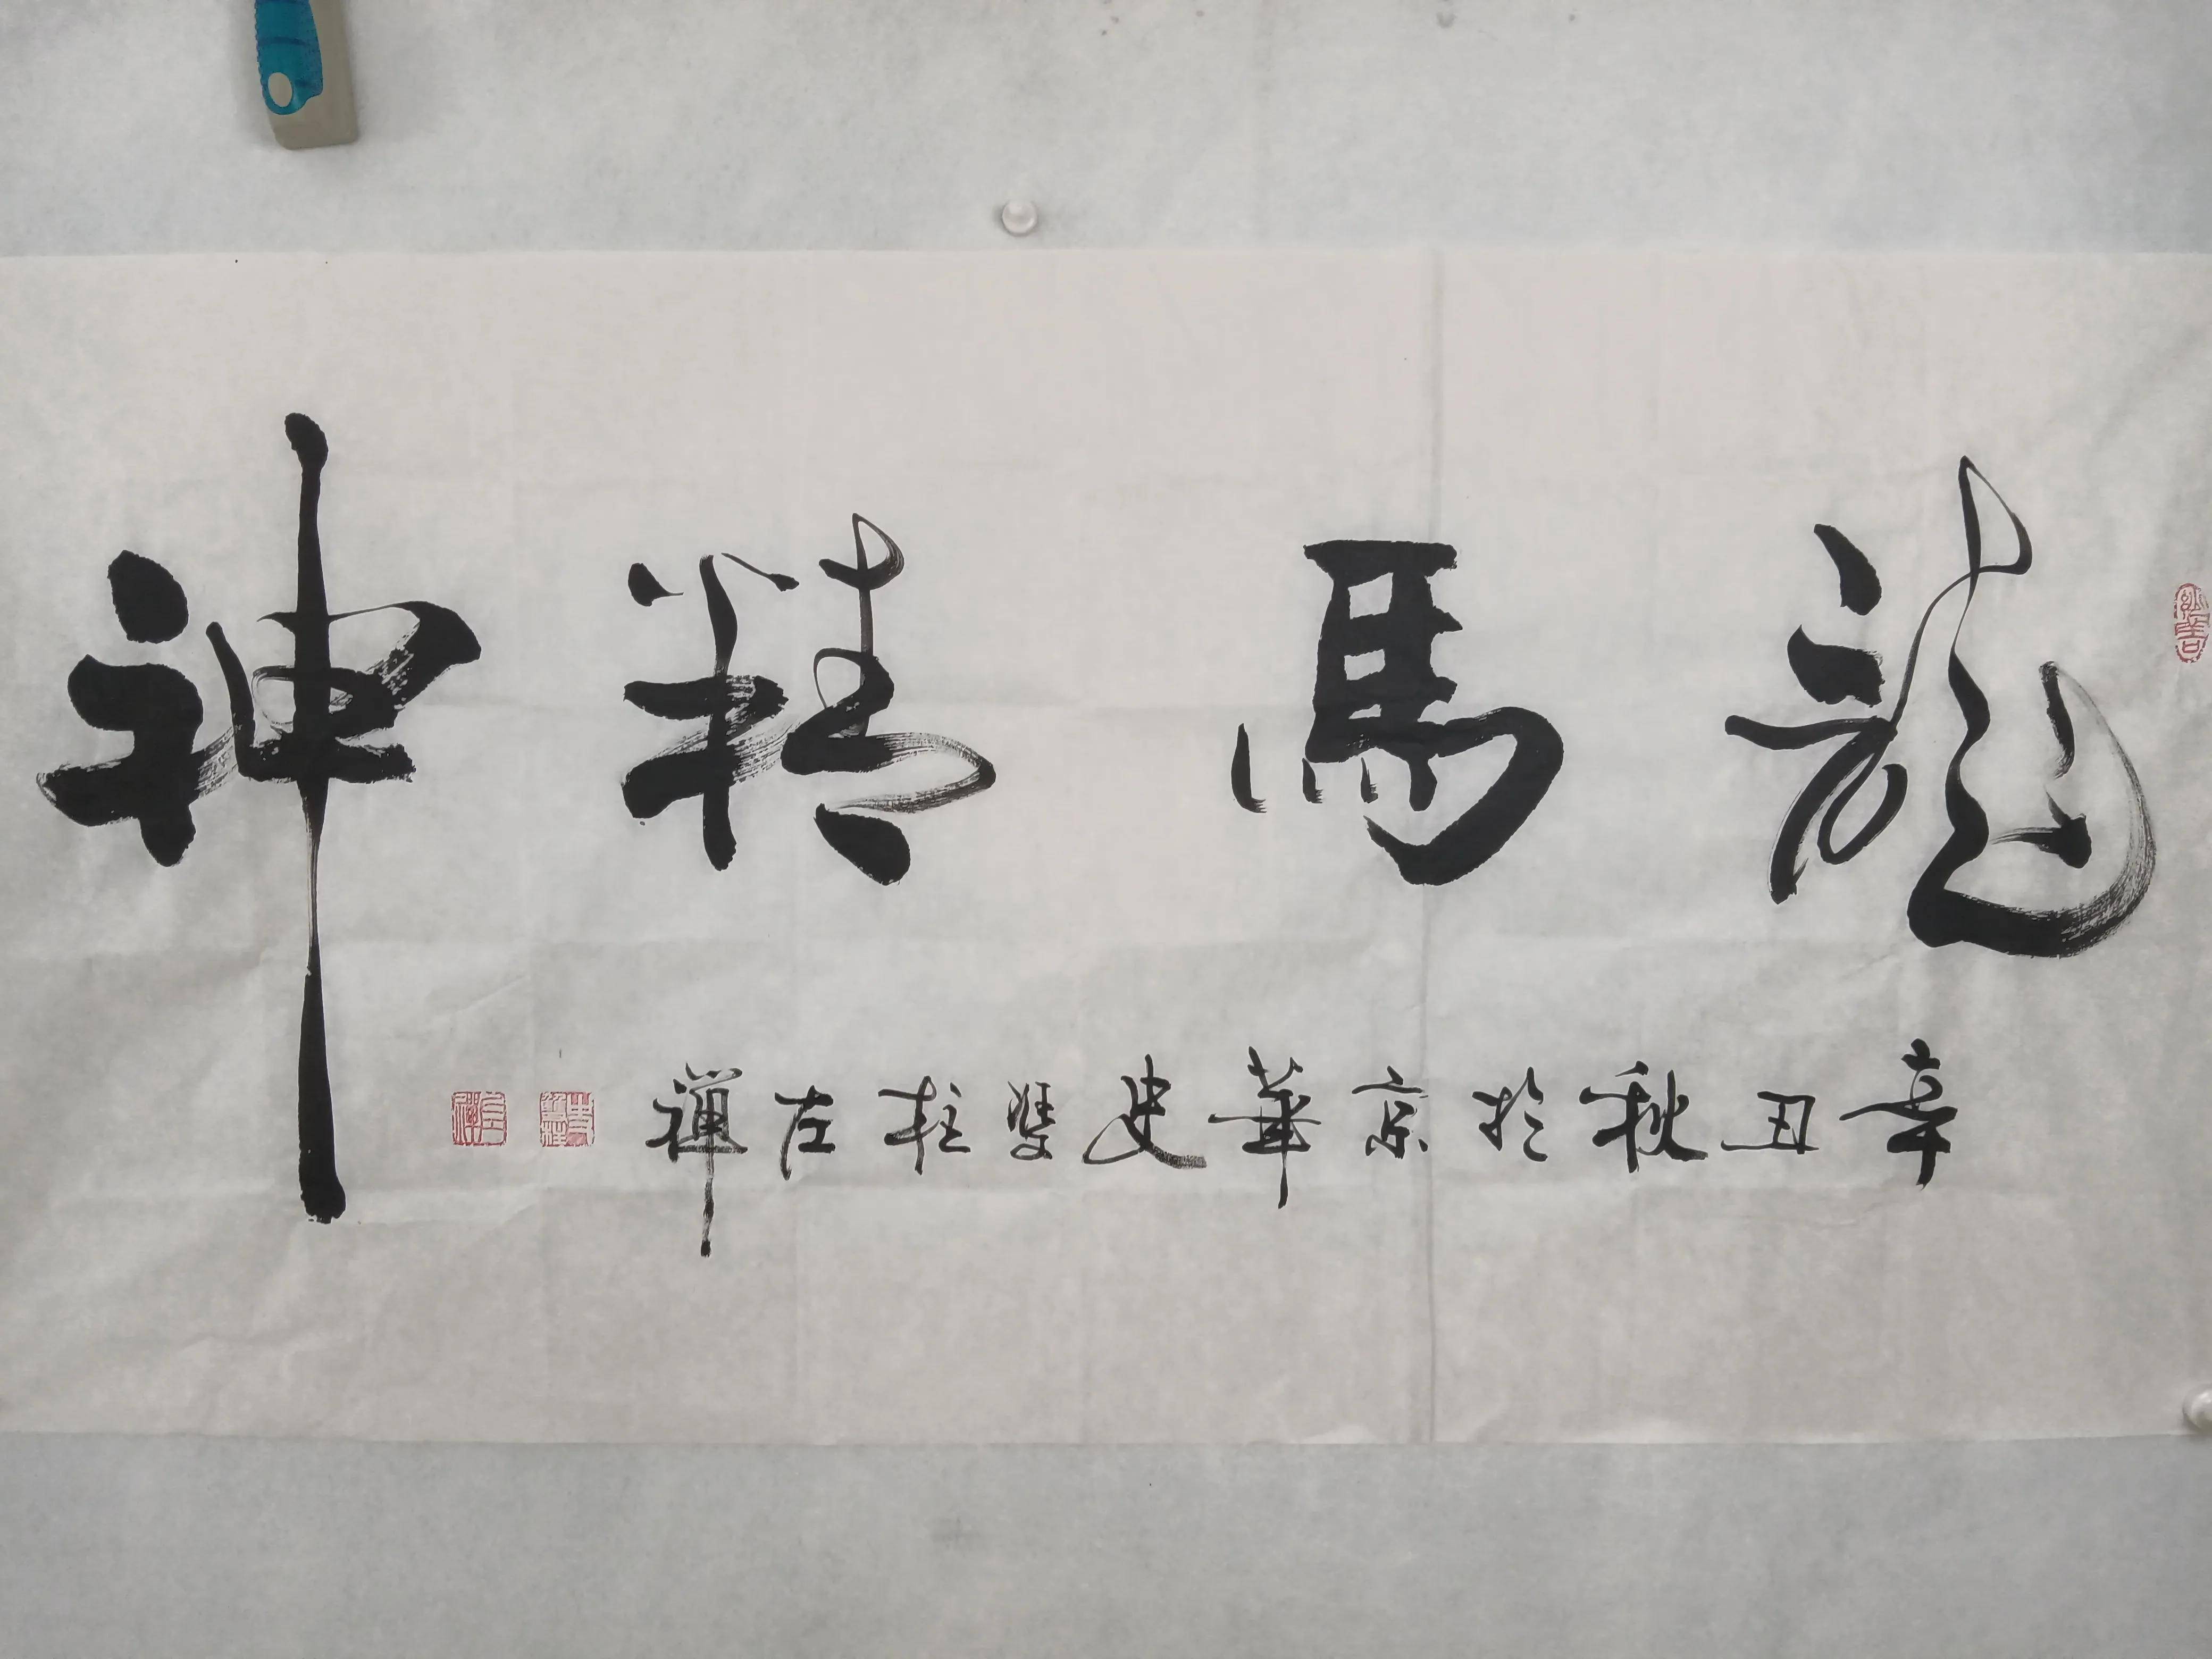 龍馬精神
辛丑秋於京華史雙柱左禪